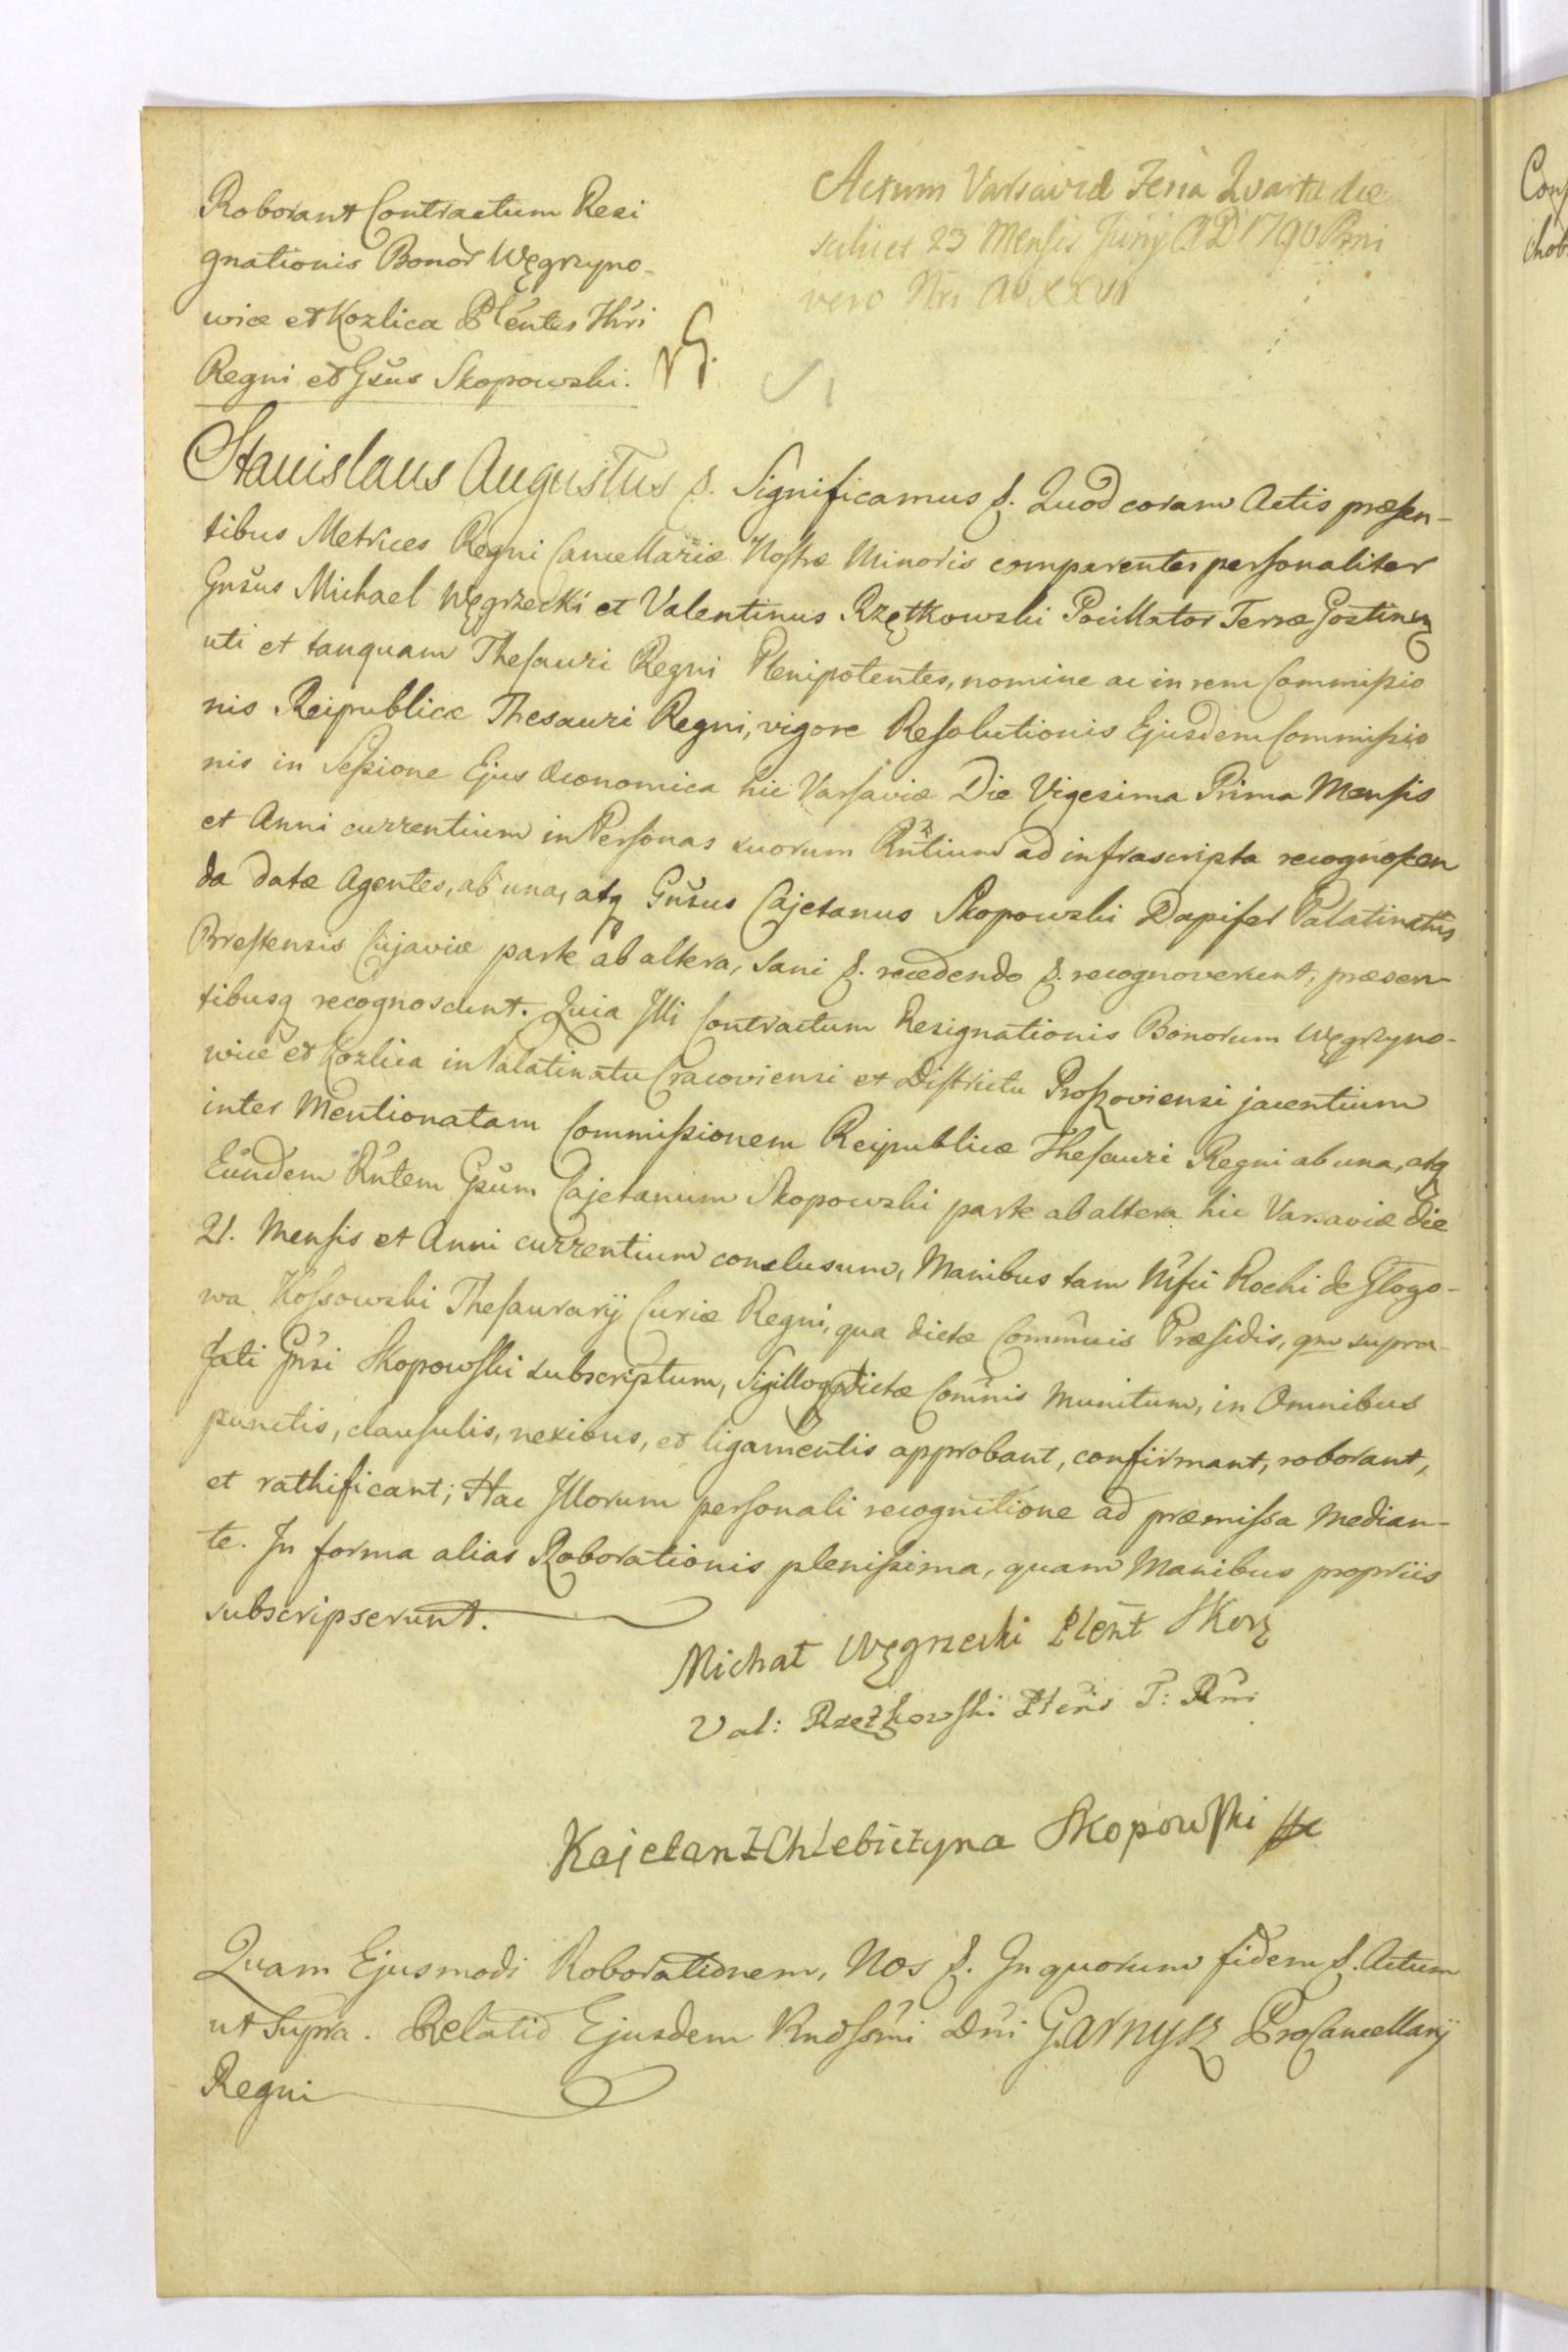 Roborant Contractum Resi
gnationis Bonor Węgrzyno-
wice et Kozlica Plentes Thri
Regni et Gsus Skopowski.
Actum Varsaviæ Feria Quarta die
scilicet 23 Mensis Junij A D 1790 Rni
vero Nri Ao XXVI
Stanislaus Augustus &. Significamus &. Quod coram Actis præsen-
tibus Metrices Regni Cancellariæ Nostræ Minoris comparentes personaliter
Gnsus Michael Węgrzecki et Valentinus Rzętkowski Pocillator Terræ Gostinen
uti et tanquam Thesauri Regni Plenipotentes, nomine ac in rem Commissio
nis Reipublicæ Thesauri Regni, vigore Resolutionis Ejusdem Commissio
nis in Sessione Ejus Œconomica hic Varsaviæ Die Vigesima Prima Mensis
et Anni currentium in Personas suorum Rntium ad infrascripta recognoscen
da datæ Agentes, ab una, atq Gnsus Cajetanus Skopowski Dapifer Palatinatus
Brestensis Cujaviæ parte ab altera, sani &. recedendo &. recognoverunt, præsen-
tibusq recognoscunt. Quia Illi Contractum Resignationis Bonorum Węgrzyno-
wice et Kozlica in Palatinatu Cracoviensi et Districtu Proszoviensi jacentium
inter Mentionatam Commissionem Reipublicæ Thesauri Regni ab una, atq
Eundem Rntem Gsum Cajetanum Skopowski parte ab altera hic Varsaviæ die
21. Mensis et Anni currentium conclusum, Manibus tam Mfci Rochi de Glogo-
wa Kossowski Thesaurarij Curiæ Regni, qua dictæ Commnis Præsidis, qm supra-
fati Gnsi Skopowski subscriptum, Sigilloq dictæ Commnis munitum, in Omnibus
punctis, clausulis, nexibus, et ligamentis approbant, confirmant, roborant,
et rathificant; Hac Illorum personali recognitione ad præmissa median-
te. In forma alias Roborationis plenissima, quam Manibus propriis
subscripserunt.
Michał Węgrzecki Plent SKor
Val: Rzętkowski Plens T: Rni
Kajetan Z Chlebiczyna Skopowski
Quam Ejusmodi Roborationem, Nos &. In quorum fidem &. Actum
ut Supra. Relatio Ejusdem Rndssmi Dni Garnysz ProCancellarij
Regni